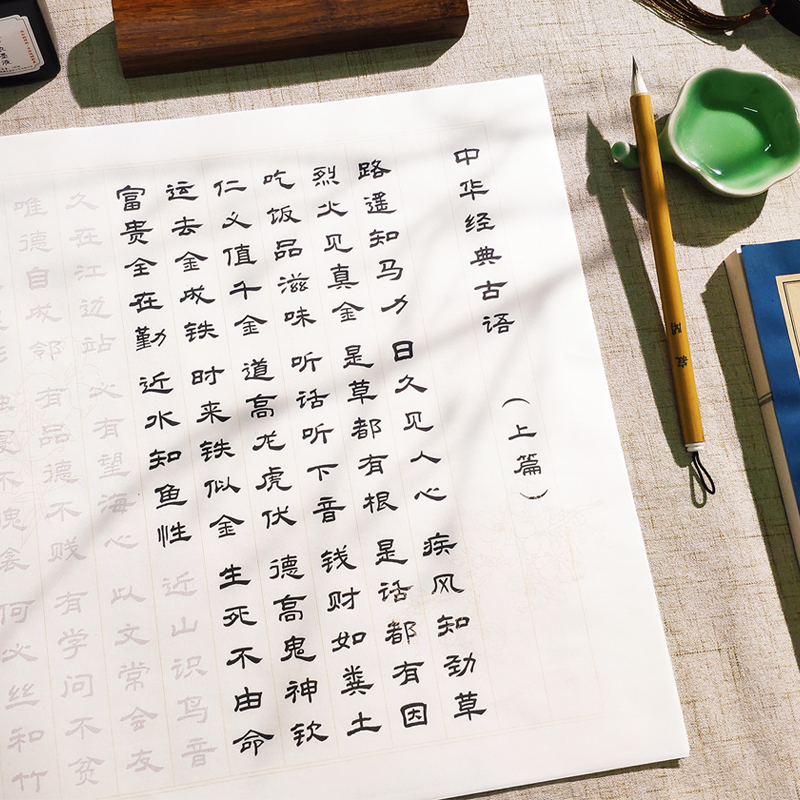 中华经典古语 （上篇）
路遥知马力 日久见人心 疾风知劲草
烈火见真金 是草都有根 是话都有因
吃饭品滋味 听话听下音 钱财如粪土
仁义值千金 道高龙虎伏 德高鬼神钦
运去金成铁 时来铁似金 生死不由命
富贵全在勤 近水知鱼性 近山识鸟音
久在江边站 必有望海心 以文常会友
唯德自成邻 有品德不贱 有学问不贫
寝不愧衾 何必丝和竹
墨液